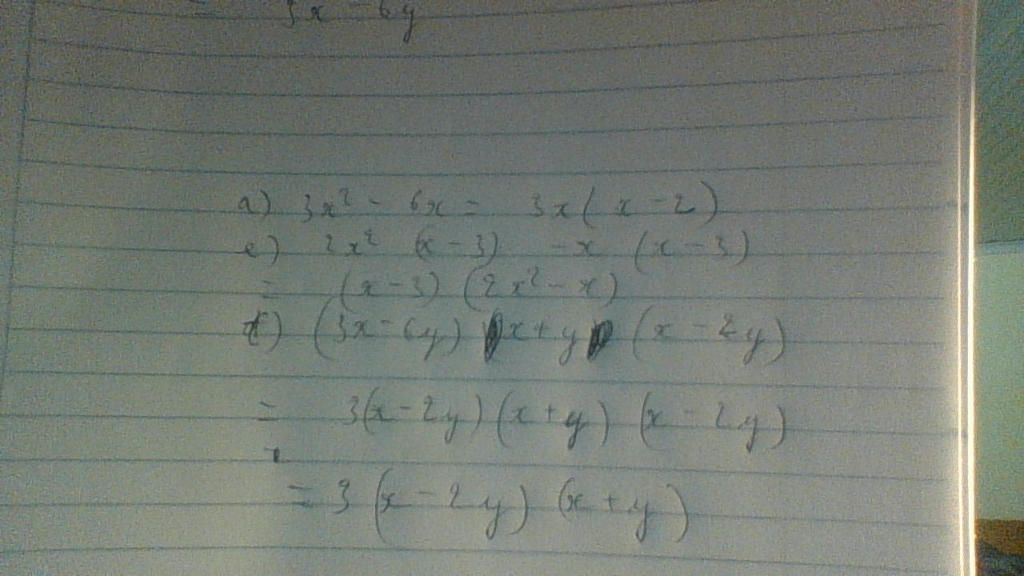 3x - 6y
a) 3x² - 6x = 3x(x-2)
e) 2x² (x-3) -x (x-3)
= (x-3) (2x²-x)
f) (3x-6y) x+y (x-2y)
= 3(x-2y) (x+y) (x-2y)
= 3 (x-2y) (x+y)